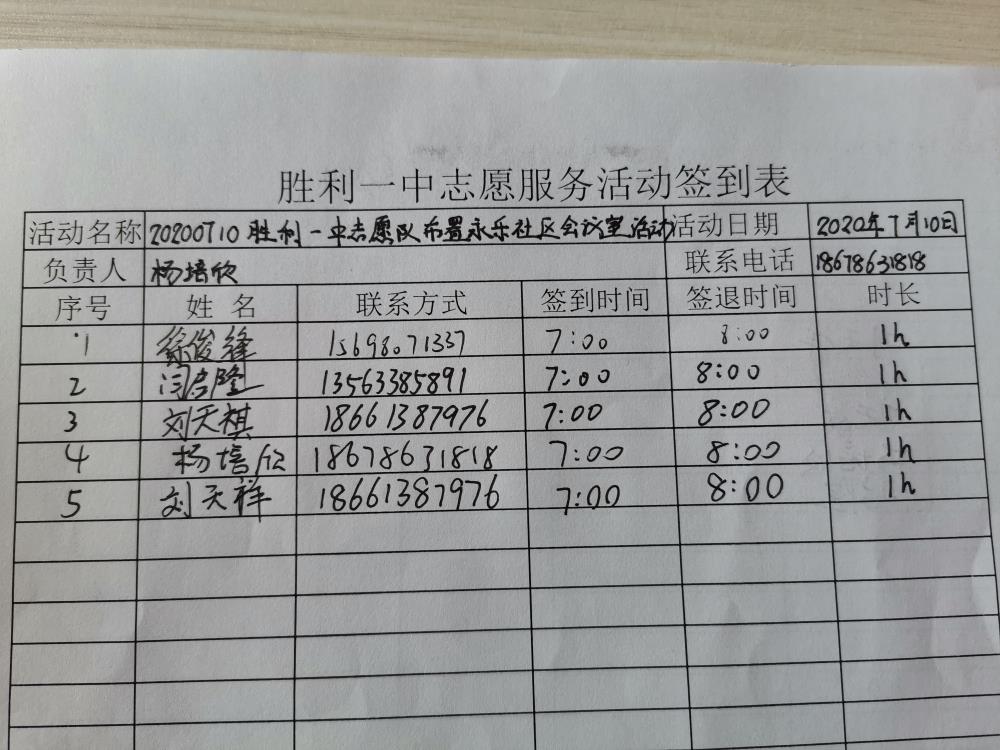 胜利一中志愿服务活动签到表
活动名称 20200710胜利一中志愿队布置永乐社区会议室活动 活动日期 2020年7月10日
负责人 杨培欣 联系电话 18678631818
序号 姓名 联系方式 签到时间 签退时间 时长
1 徐俊锋 15698071337 7:00 8:00 1h
2 闫启隆 13563385891 7:00 8:00 1h
3 刘天祺 18661387976 7:00 8:00 1h
4 杨培欣 18678631818 7:00 8:00 1h
5 刘天祥 18661387976 7:00 8:00 1h